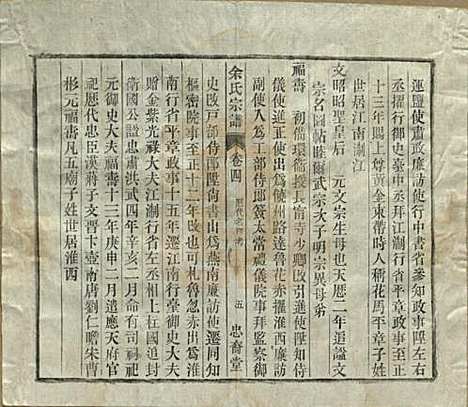 運鹽使肅政廉訪使行中書省參知政事陞左右
丞擢行御史臺中丞拜江淛行省平章政事至正
十三年賜上尊黃金束帶時人稱花馬平章子姓
世居江南淛江
文昭昭聖皇后 元文宗生母也天厯二年追謚文
宗名圖帖睦爾武宗次子明宗異母弟
福壽 初備環衛授長甯寺少卿改引進使陞知侍
儀使進正使出爲饒州路達魯花赤擢淮西廉訪
副使入爲工部侍郎簽太常禮儀院事拜監察御
余氏宗譜 卷四 五 忠裔堂
史改戸部侍郎陞尙書出爲燕南廉訪使遷同知
樞密院事至正十二年改也可札魯忽赤出爲淮
南行省平章政事十五年遷江南行臺御史大夫
贈金紫光祿大夫江淛行省左丞相上柱國追封
衞國公謚忠肅洪武四年辛亥二月命有司祠祀
元御史大夫福壽十三年庚申二月遣應天府官
祀厯代忠臣漢蔣子文晋卞壼南唐劉仁瞻宋曹
彬元福壽凡五廟子姓世居淮西